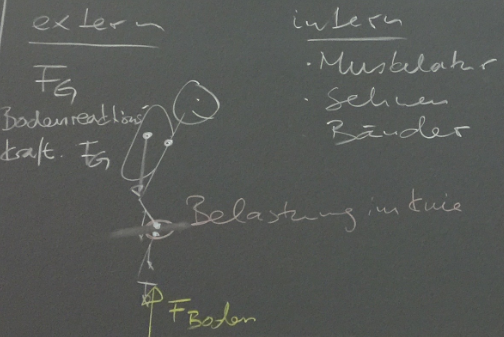 extern
F_G
Bodenreaktions
kraft. F_G
intern
· Muskulatur
· Sehnen
Bänder
Belastung im Knie
F_Boden